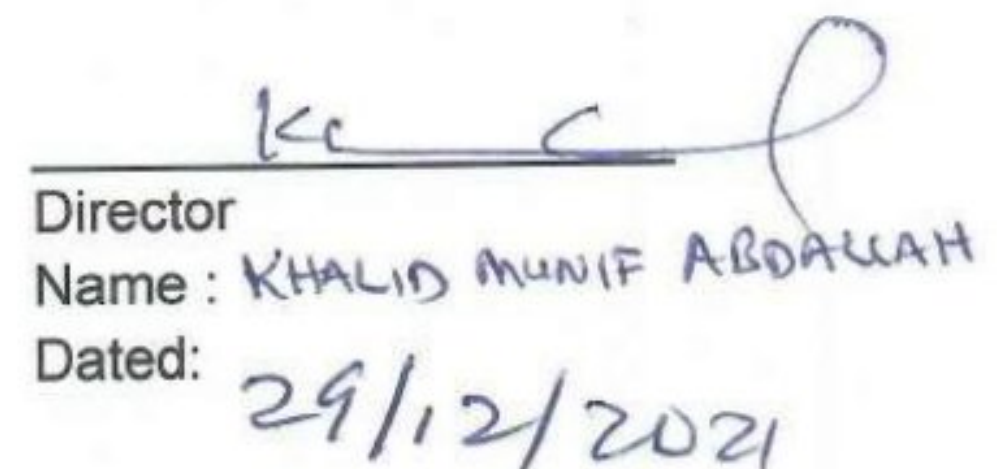 Director
Name : KHALID MUNIF ABDALLAH
Dated: 29/12/2021